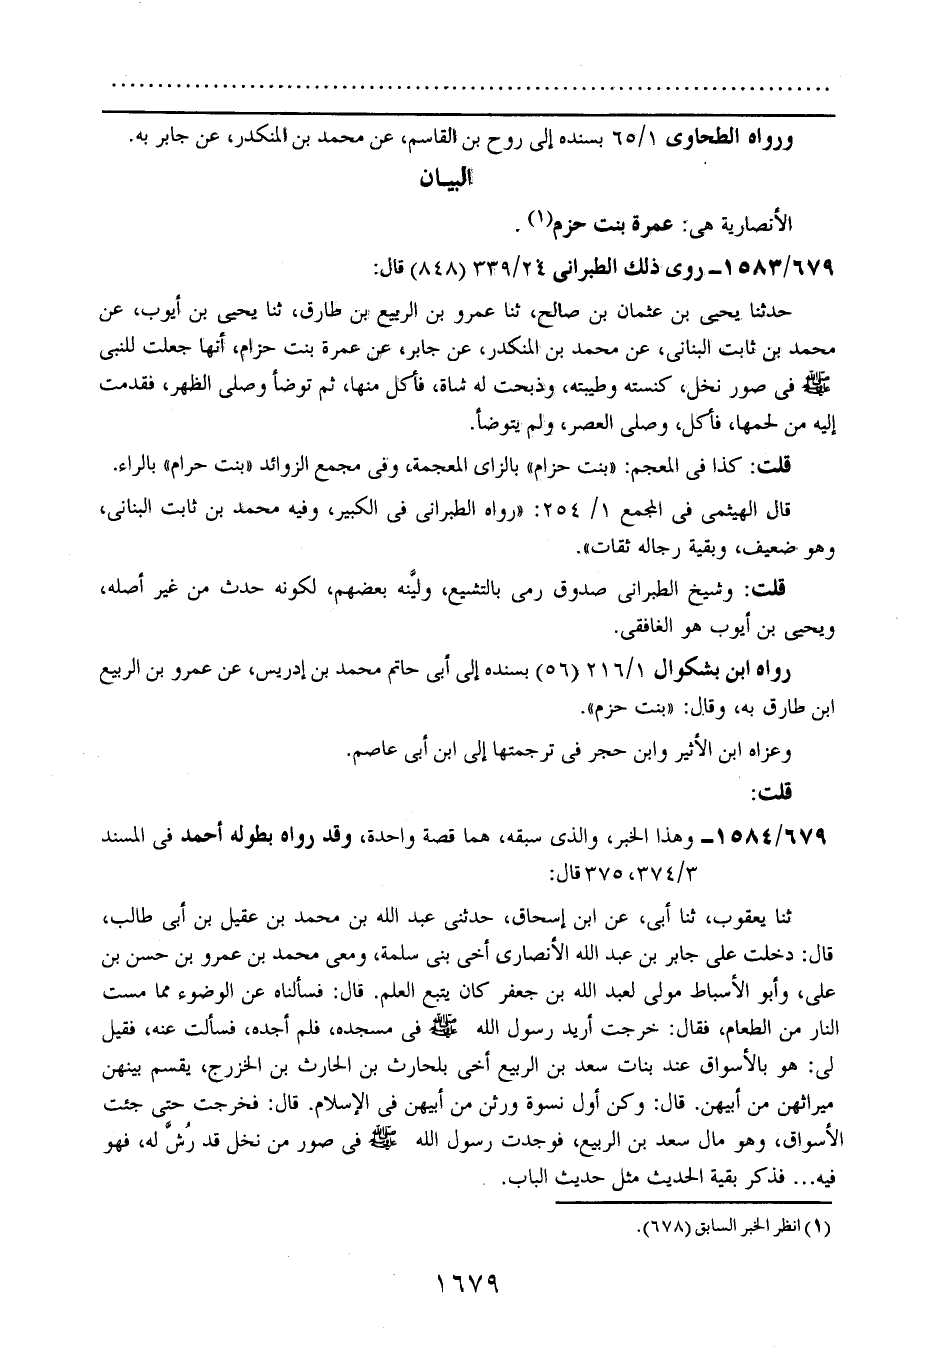 ورواه الطحاوى ٦٥/١ بسنده إلى روح بن القاسم، عن محمد بن المنكدر، عن جابر به.
البيـان
الأنصارية هى: عمرة بنت حزم(١) .
١٥٨٣/٦٧٩ـ روى ذلك الطبرانى ٣٣٩/٢٤ (٨٤٨) قال:
حدثنا يحيى بن عثمان بن صالح، ثنا عمرو بن الربيع بن طارق، ثنا يحيى بن أيوب، عن
محمد بن ثابت البنانى، عن محمد بن المنكدر، عن جابر، عن عمرة بنت حزام، أنها جعلت للنبى
ﷺ فى صور نخل، كنسته وطيبته، وذبحت له شاة، فأكل منها، ثم توضأ وصلى الظهر، فقدمت
إليه من لحمها، فأكل، وصلى العصر، ولم يتوضأ.
قلت: كذا فى المعجم: «بنت حزام» بالزاى المعجمة، وفى مجمع الزوائد «بنت حرام» بالراء.
قال الهيثمى فى المجمع ١/ ٢٥٤: «رواه الطبرانى فى الكبير، وفيه محمد بن ثابت البنانى،
وهو ضعيف، وبقية رجاله ثقات».
قلت: وشيخ الطبرانى صدوق رمى بالتشيع، وليَّنه بعضهم، لكونه حدث من غير أصله،
ويحيى بن أيوب هو الغافقى.
رواه ابن بشكوال ٢١٦/١ (٥٦) بسنده إلى أبى حاتم محمد بن إدريس، عن عمرو بن الربيع
ابن طارق به، وقال: «بنت حزم».
وعزاه ابن الأثير وابن حجر فى ترجمتها إلى ابن أبى عاصم.
قلت:
١٥٨٤/٦٧٩ـ وهذا الخبر، والذى سبقه، هما قصة واحدة، وقد رواه بطوله أحمد فى المسند
٣٧٤/٣، ٣٧٥ قال:
ثنا يعقوب، ثنا أبى، عن ابن إسحاق، حدثنى عبد الله بن محمد بن عقيل بن أبى طالب،
قال: دخلت على جابر بن عبد الله الأنصارى أخى بنى سلمة، ومعى محمد بن عمرو بن حسن بن
على، وأبو الأسباط مولى لعبد الله بن جعفر كان يتبع العلم. قال: فسألناه عن الوضوء مما مست
النار من الطعام، فقال: خرجت أريد رسول الله ﷺ فى مسجده، فلم أجده، فسألت عنه، فقيل
لى: هو بالأسواق عند بنات سعد بن الربيع أخى بلحارث بن الحارث بن الخزرج، يقسم بينهن
ميراثهن من أبيهن. قال: وكن أول نسوة ورثن من أبيهن فى الإسلام. قال: فخرجت حتى جئت
الأسواق، وهو مال سعد بن الربيع، فوجدت رسول الله ﷺ فى صور من نخل قد رُشَّ له، فهو
فيه... فذكر بقية الحديث مثل حديث الباب.
(١) انظر الخبر السابق (٦٧٨).
١٦٧٩